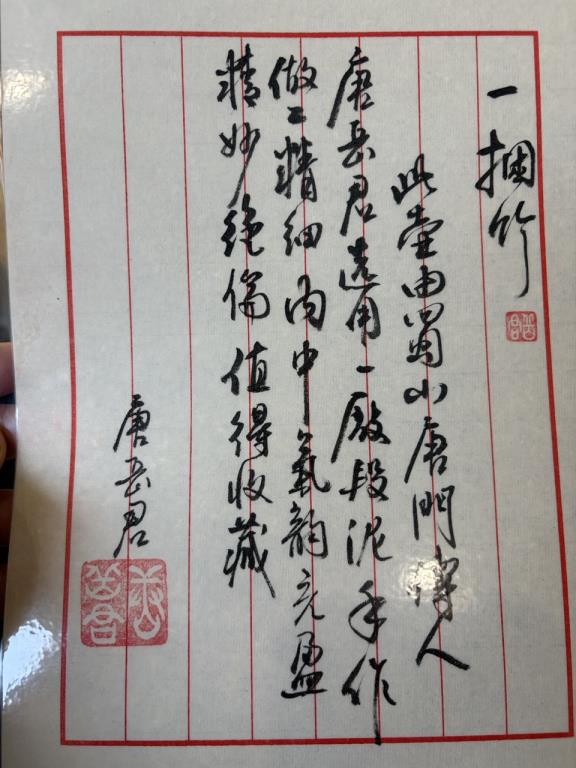 一捆竹
此壶由蜀山唐門傳人
唐岳君選用一厰段泥手作
做工精细内中氣韵充盈
精妙绝倫值得收藏
唐岳君